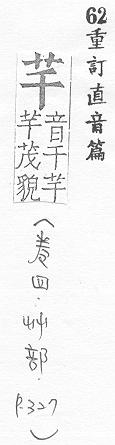 62重訂直音篇
芉
音干芉
芉茂貌
(卷四·艸部·
P.327)